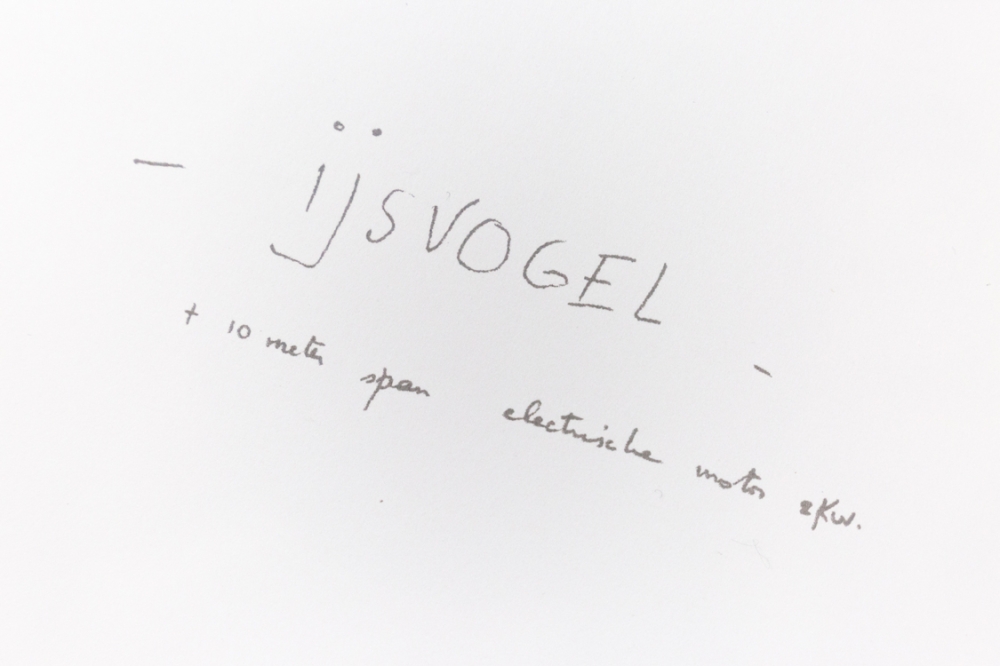 - ijSVOGEL -
+ 10 meter span electrische motor 2Kw.